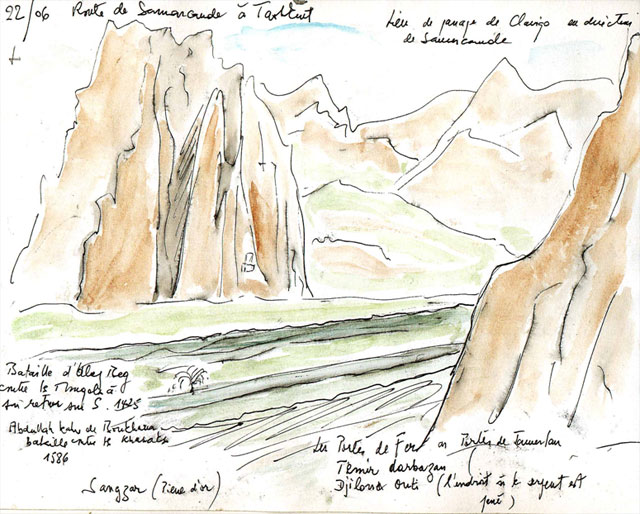 22/06 Route de Samarcande à Tachkent
Lieu de passage de Clavijo en direction
de Samarcande
Bataille d'Uleg Beg
contre ls Mongols à
son retour sur S. 1425
Abdullah Kahn de Boukhara
bataille contre ls Khasaks
1586
Sangzar (Pierre d'or)
Les Portes de Fer ou Portes de Tamerlan
Temir darbazan
Djilanour outi (l'endroit où le serpent est
passé)